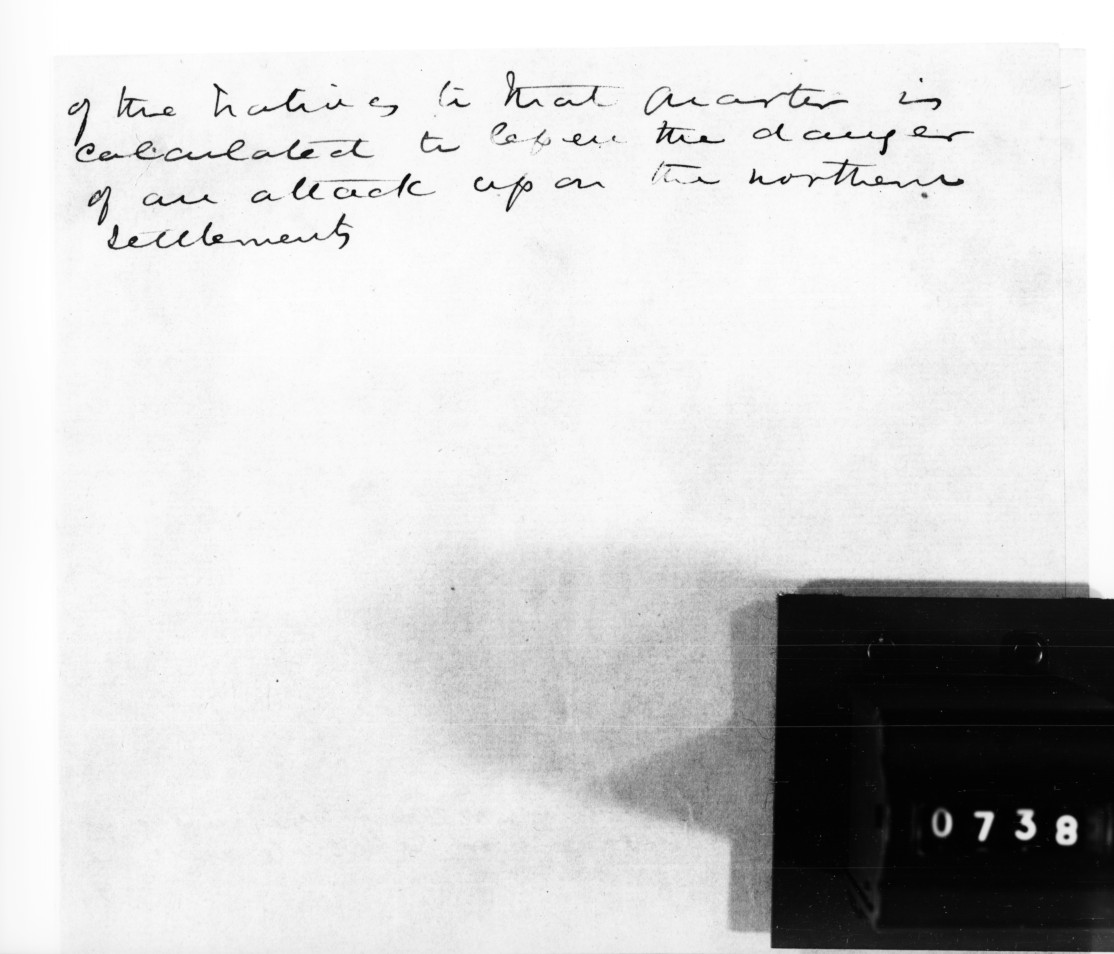 of the natives to that quarter is
calculated to lessen the danger
of an attack upon the northern
settlements
0738